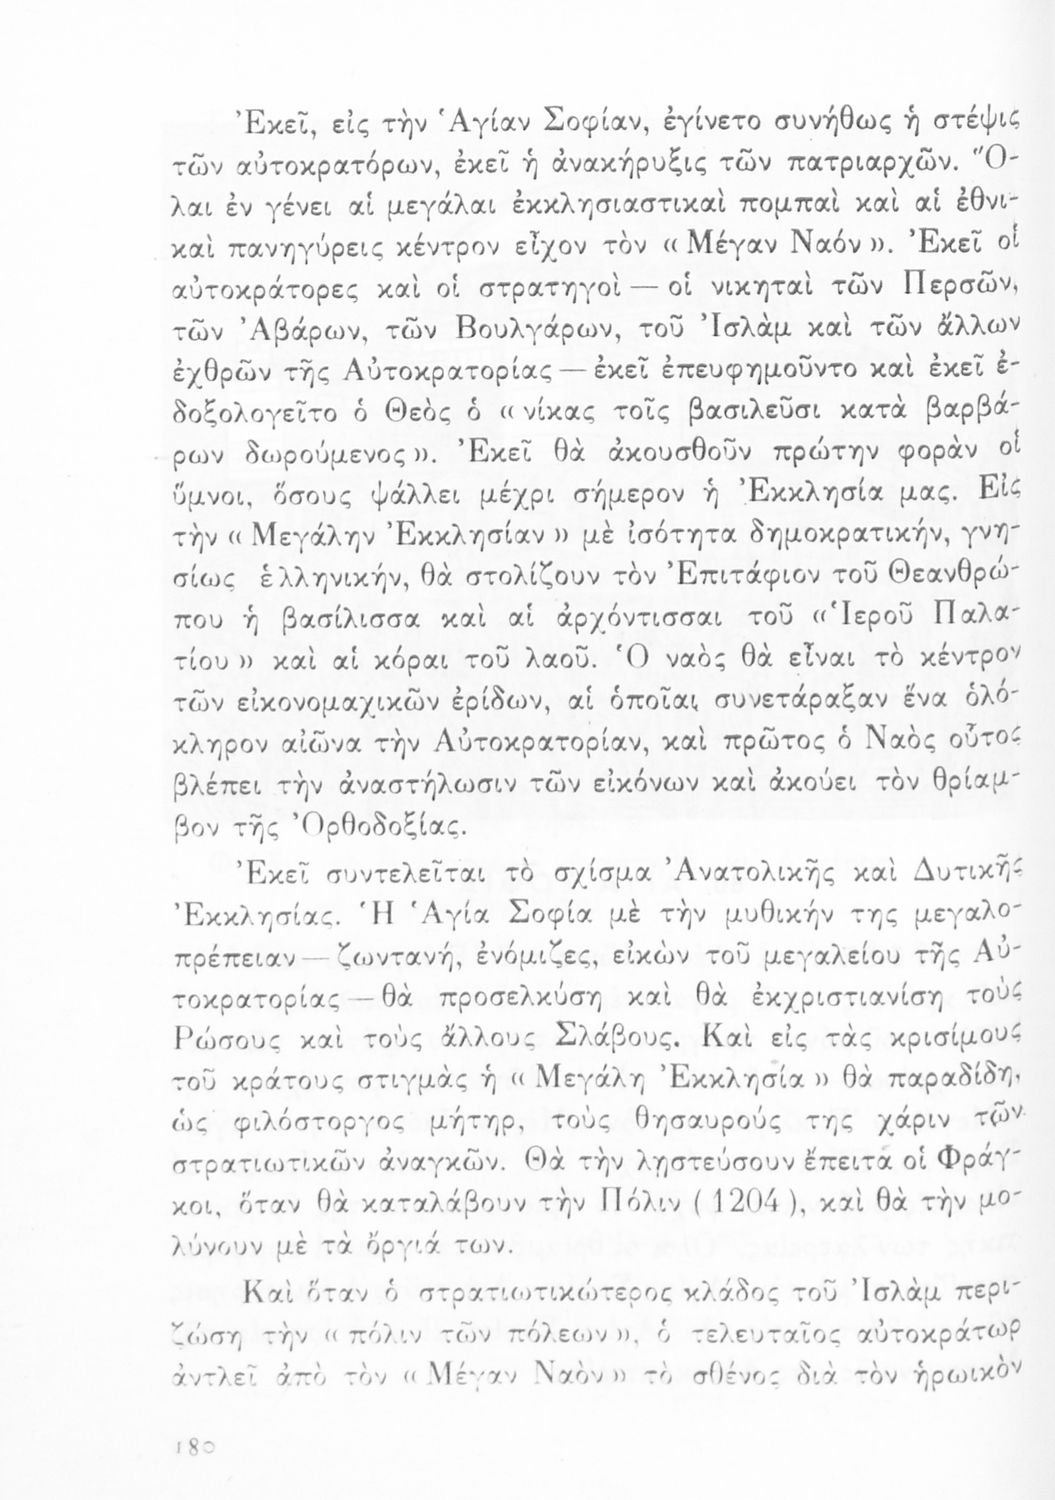 Ἐκεῖ, εἰς τὴν Ἁγίαν Σοφίαν, ἐγίνετο συνήθως ἡ στέψις
τῶν αὐτοκρατόρων, ἐκεῖ ἡ ἀνακήρυξις τῶν πατριαρχῶν. Ὅ-
λαι ἐν γένει αἱ μεγάλαι ἐκκλησιαστικαὶ πομπαὶ καὶ αἱ ἐθνι-
καὶ πανηγύρεις κέντρον εἶχον τὸν « Μέγαν Ναόν ». Ἐκεῖ οἱ
αὐτοκράτορες καὶ οἱ στρατηγοὶ — οἱ νικηταὶ τῶν Περσῶν,
τῶν Ἀβάρων, τῶν Βουλγάρων, τοῦ Ἰσλὰμ καὶ τῶν ἄλλων
ἐχθρῶν τῆς Αὐτοκρατορίας — ἐκεῖ ἐπευφημοῦντο καὶ ἐκεῖ ἐ-
δοξολογεῖτο ὁ Θεὸς ὁ « νίκας τοῖς βασιλεῦσι κατὰ βαρβά-
ρων δωρούμενος ». Ἐκεῖ θὰ ἀκουσθοῦν πρώτην φορὰν οἱ
ὕμνοι, ὅσους ψάλλει μέχρι σήμερον ἡ Ἐκκλησία μας. Εἰς
τὴν « Μεγάλην Ἐκκλησίαν » μὲ ἰσότητα δημοκρατικήν, γνη-
σίως ἑλληνικήν, θὰ στολίζουν τὸν Ἐπιτάφιον τοῦ Θεανθρώ-
που ἡ βασίλισσα καὶ αἱ ἀρχόντισσαι τοῦ « Ἱεροῦ Παλα-
τίου » καὶ αἱ κόραι τοῦ λαοῦ. Ὁ ναὸς θὰ εἶναι τὸ κέντρον
τῶν εἰκονομαχικῶν ἐρίδων, αἱ ὁποῖαι συνετάραξαν ἕνα ὁλό-
κληρον αἰῶνα τὴν Αὐτοκρατορίαν, καὶ πρῶτος ὁ Ναὸς οὗτος
βλέπει τὴν ἀναστήλωσιν τῶν εἰκόνων καὶ ἀκούει τὸν θρίαμ-
βον τῆς Ὀρθοδοξίας.
Ἐκεῖ συντελεῖται τὸ σχίσμα Ἀνατολικῆς καὶ Δυτικῆς
Ἐκκλησίας. Ἡ Ἁγία Σοφία μὲ τὴν μυθικήν της μεγαλο-
πρέπειαν — ζωντανή, ἐνόμιζες, εἰκὼν τοῦ μεγαλείου τῆς Αὐ-
τοκρατορίας — θὰ προσελκύση καὶ θὰ ἐκχριστιανίση τοὺς
Ρώσους καὶ τοὺς ἄλλους Σλάβους. Καὶ εἰς τὰς κρισίμους
τοῦ κράτους στιγμὰς ἡ « Μεγάλη Ἐκκλησία » θὰ παραδίδη,
ὡς φιλόστοργος μήτηρ, τοὺς θησαυρούς της χάριν τῶν
στρατιωτικῶν ἀναγκῶν. Θὰ τὴν ληστεύσουν ἔπειτα οἱ Φράγ-
κοι, ὅταν θὰ καταλάβουν τὴν Πόλιν ( 1204 ), καὶ θὰ τὴν μο-
λύνουν μὲ τὰ ὄργιά των.
Καὶ ὅταν ὁ στρατιωτικώτερος κλάδος τοῦ Ἰσλὰμ περι-
ζώση τὴν « πόλιν τῶν πόλεων », ὁ τελευταῖος αὐτοκράτωρ
ἀντλεῖ ἀπὸ τὸν « Μέγαν Ναὸν » τὸ σθένος διὰ τὸν ἡρωικὸν
180